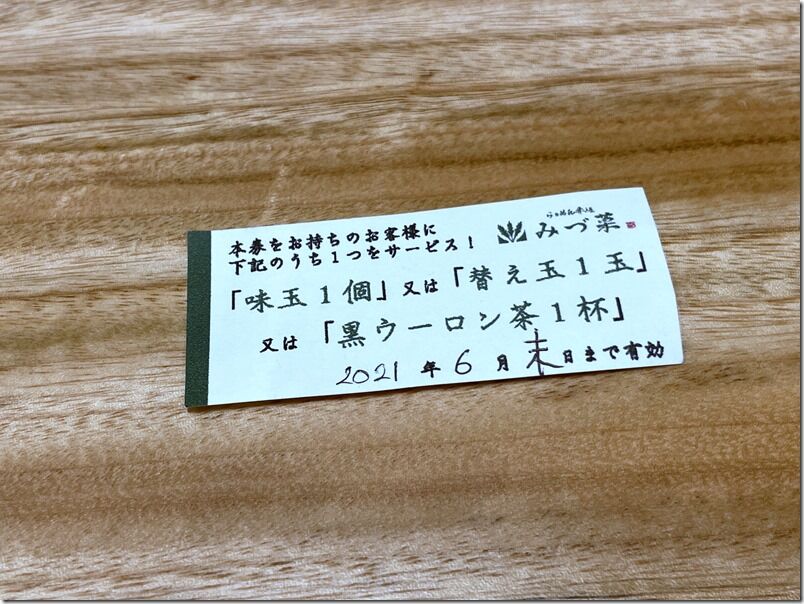 みづ菜
本券をお持ちのお客様に
下記のうち1つをサービス!
「味玉1個」又は「替え玉1玉」
又は「黒ウーロン茶1杯」
2021年6月末日まで有効